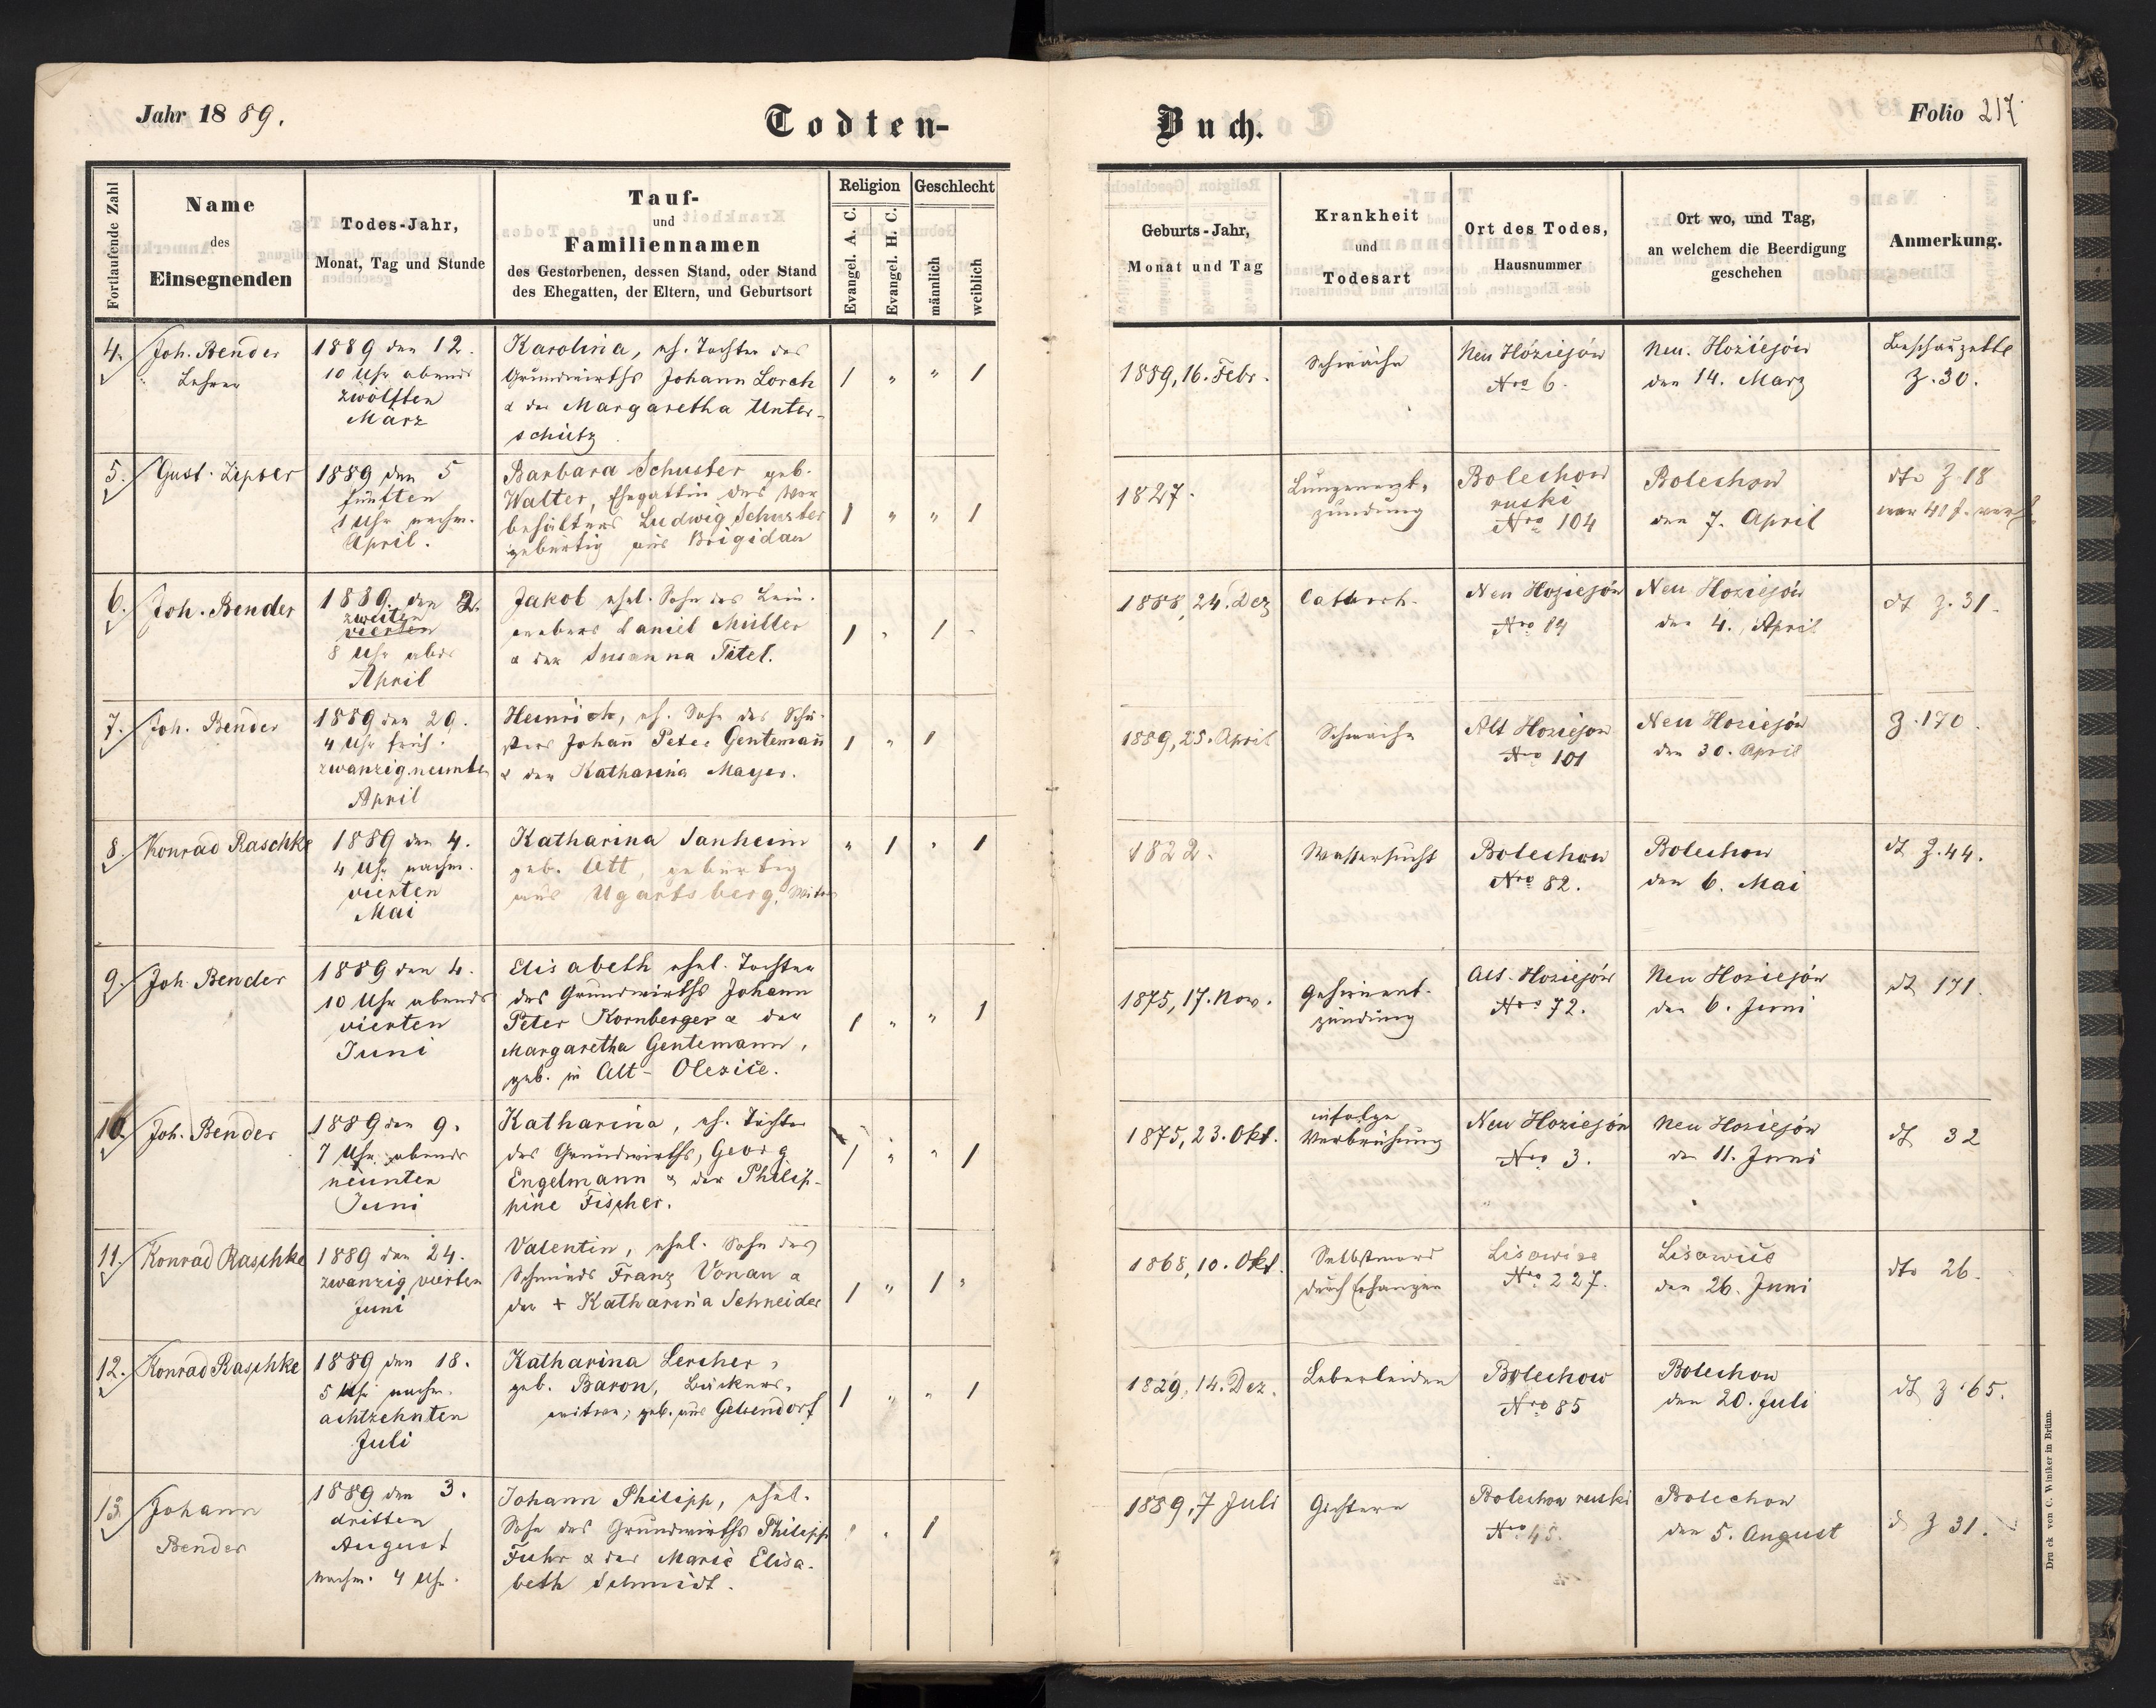 Jahr 1889.
Todten-
Buch.
Folio 217
Fortlaufende Zahl
Name
des
Einsegnenden
Todes-Jahr,
Monat, Tag und Stunde
Tauf-
und
Familiennamen
des Gestorbenen, dessen Stand, oder Stand
des Ehegatten, der Eltern, und Geburtsort
Religion
Evangel. A. C.
Evangel. H. C.
Geschlecht
männlich
weiblich
Geburts-Jahr,
Monat und Tag
Krankheit
und
Todesart
Ort des Todes,
Hausnummer
Ort wo, und Tag,
an welchem die Beerdigung
geschehen
Anmerkung.
4.
Joh. Bender
Lehrer
1889 den 12.
10 Uhr abends
zwölften
März
Karolina, eh. Tochter des
Grundwirths Johann Lorch
& der Margaretha Unter-
schütz
1 " " 1
1889, 16. Febr.
Schwäche
Neu Hoziejów
Nro 6.
Neu. Hoziejów
den 14. März
Beschauzettel
Z. 30.
5.
Gust. Zipser
1889 den 5
fünften
1 Uhr nachm.
April.
Barbara Schuster geb.
Walter, Ehegattin des
Ludwig Schuster
gebürtig aus Brigidau
1 " " 1
1827.
Lungenent-
zündung
Bolechow
ruski
Nro 104
Bolechow
den 7. April
dto Z. 18
war 41 J.
6.
Joh. Bender
1889. den 2.
zweiten
vierten
8 Uhr abds
April
Jakob ehel. Sohn des Lein-
webers Daniel Müller
& der Susanna Titel.
1 " 1 "
1888, 24. Dez
Catarrh.
Neu Hoziejów
Nro 89
Neu Hoziejów
den 4. April
dt Z. 31.
7.
Joh. Bender
1889 den 29.
4 Uhr früh.
zwanzigneunten
April
Heinrich, eh. Sohn des Schu-
sters Johann Peter Gentemann
& der Katharina Mayer.
1 " 1
1889, 25. April
Schwäche
Alt Hoziejow
Nro 101
Neu Hoziejów
den 30. April
Z. 170.
8.
Konrad Raschke
1889 den 4.
4 Uhr nachm.
vierten
Mai
Katharina Sanheim
geb. Ott, gebürtig
aus Ugartsberg,
" 1 " 1
1822.
Wassersucht
Bolechow
Nro 82.
Bolechow
den 6. Mai
dt Z. 44.
9.
Joh. Bender
1889 den 4.
10 Uhr abends
vierten
Juni
Elisabeth ehel. Tochter
des Grundwirths Johann
Peter Kornberger & der
Margaretha Gentemann,
geb. in Alt-Olesice.
1 " " 1
1875, 17. Nov.
Gehirnent-
zündung
Alt-Hoziejów
Nro 72.
Neu Hoziejów
den 6. Juni
dt 171.
10.
Joh. Bender
1889 den 9.
7 Uhr abends
neunten
Juni
Katharina, eh. Tochter
des Grundwirths, Georg
Engelmann & der Philip-
pine Fischer.
1 " " 1
1875, 23. Okt.
infolge
Verbrühung
Neu Hoziejów
Nro 3.
Neu Hoziejów
den 11. Juni
dt 32
11.
Konrad Raschke
1889 den 24.
zwanzig vierten
Juni
Valentin, ehel. Sohn des
Schmieds Franz Vonau &
der + Katharina Schneider
1 " 1 "
1868, 10. Okt.
Selbstmord
durch Erhängen
Lisowice
Nro 227.
Lisowice
den 26. Juni
dto 26.
12.
Konrad Raschke
1889 den 18.
5 Uhr nachm.
achtzehnten
Juli
Katharina Lercher,
geb. Baron, Bäckers-
witwe; geb. aus Gelsendorf
1 " " 1
1829, 14. Dez.
Leberleiden
Bolechow
Nro 85
Bolechow
den 20. Juli
dt Z. 65.
13.
Johann
Bender
1889 den 3.
dritten
August
nachm. 4 Uhr.
Johann Philipp, ehel.
Sohn des Grundwirths Philipp
Fuhr & der Marie Elisa-
beth Schmidt.
1 " 1
1889, 7 Juli
Gichtern
Bolechow ruski
Nro 45.
Bolechow
den 5. August
d Z 31.
Druck von C. Winiker in Brünn.